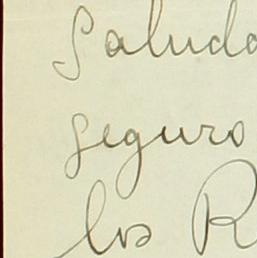 Saluda
seguro
los R